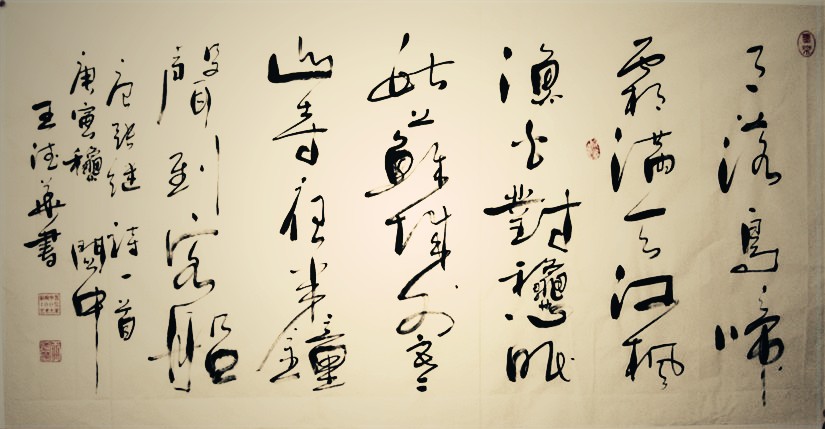 月落烏啼
霜滿天江楓
漁火對愁眠
姑蘇城外寒
山寺夜半鐘
聲到客船
唐張繼詩一首
庚寅龝關中
王德華書